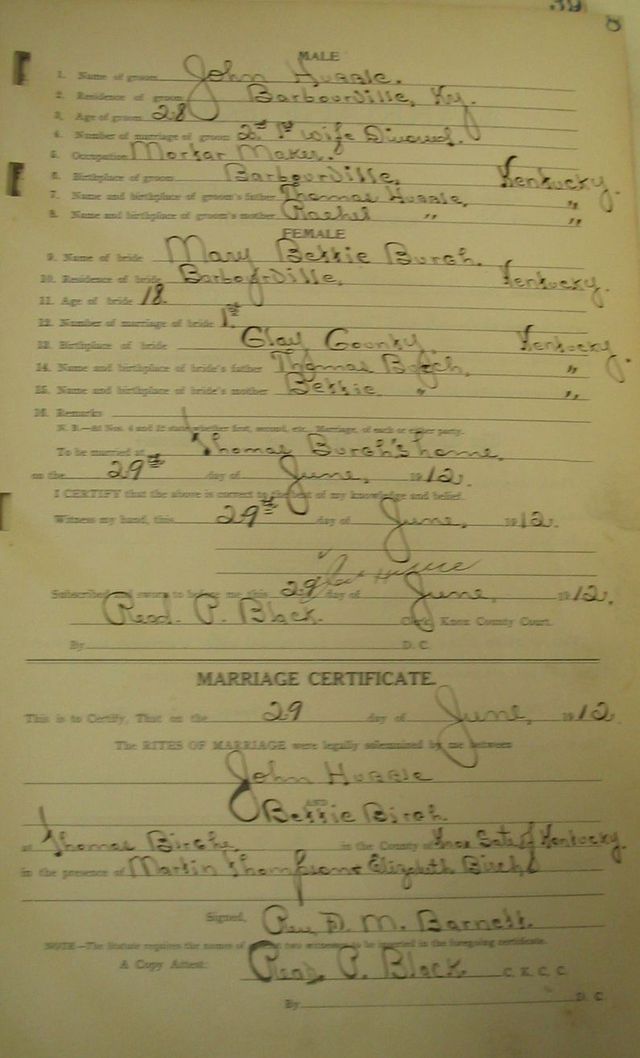 39 8
MALE
1. Name of groom John Hubble.
2. Residence of groom Barbourville, Ky.
3. Age of groom 28
4. Number of marriage of groom 2nd 1st Wife Divorced.
5. Occupation Mortar Maker.
6. Birthplace of groom Barbourville, Kentucky.
7. Name and birthplace of groom's father Thomas Hubble, "
8. Name and birthplace of groom's mother Rachel " "
FEMALE
9. Name of bride Mary Bettie Burch.
10. Residence of bride Barbourville, Kentucky.
11. Age of bride 18.
12. Number of marriage of bride 1st
13. Birthplace of bride Clay County Kentucky.
14. Name and birthplace of bride's father Thomas Burch, "
15. Name and birthplace of bride's mother Bettie " "
16. Remarks
N. B.—At Nos. 4 and 12 state whether first, second, etc., Marriage, of each or either party.
To be married at Thomas Burch's home,
on the 29th day of June, 1912.
I CERTIFY that the above is correct to the best of my knowledge and belief.
Witness my hand, this 29th day of June, 1912.
Subscribed and sworn to before me this 29 day of June, 1912.
Read. P. Black. Clerk Knox County Court.
By D. C.
MARRIAGE CERTIFICATE
This is to Certify, That on the 29 day of June, 1912.
The RITES OF MARRIAGE were legally solemnized by me between
John Hubble
AND
Bettie Birch.
at Thomas Birchs, in the County of Knox State of Kentucky.
in the presence of Martin Thompson + Elizabeth Birch
Signed, Rev. D. M. Barnett.
NOTE—The Statute requires the names of at least two witnesses to be inserted in the foregoing certificate.
A Copy Attest: Read. P. Black C. K. C. C.
By D. C.